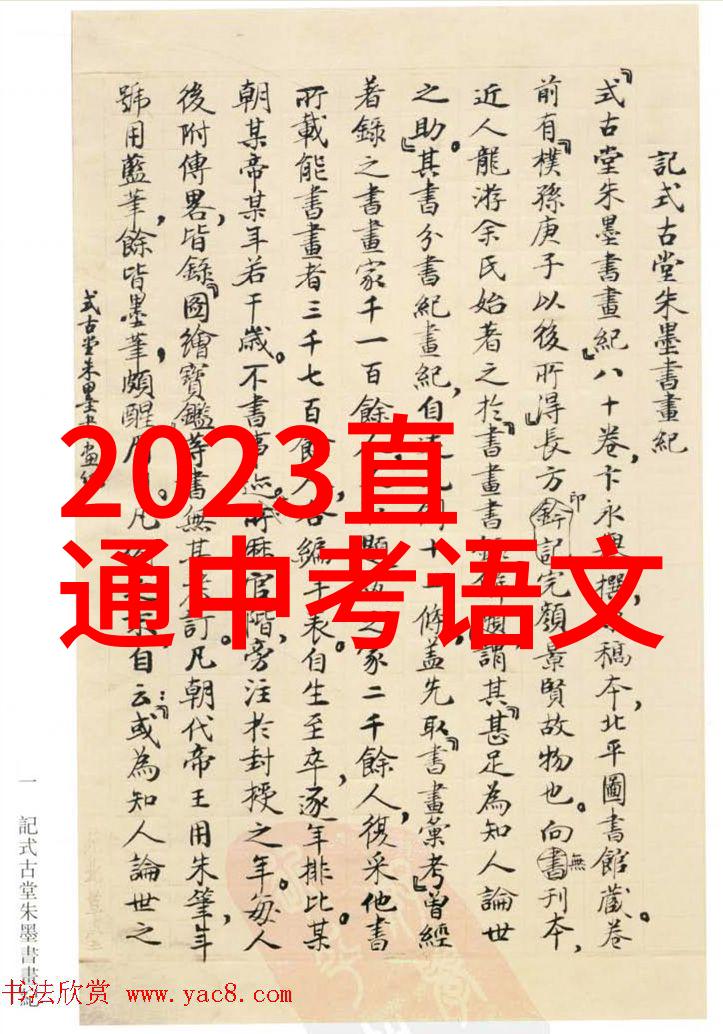 記式古堂朱墨書畫紀
『式古堂朱墨書畫紀』八十卷,卞永譽撰,稿本,北平圖書館藏。卷
前有『樸孫庚子以後所得』長方印記,完顏景賢故物也。向無刊本,
近人龍游余氏始著之於『書畫書錄解題』,謂其『甚足為知人論世
之助』。其書分書紀畫紀,自 十一 條,蓋先取『書畫彙考』曾經
著錄之書畫家千一百餘人, 題 之家二千餘人,復采他書
所載能書畫者三千七百餘人,各編年表。自生至卒,逐年排比某
朝某帝某年若干歲。不書事迹,所歷官階,旁注於封授之年。每人
後附傳畧,皆錄『圖繪寶鑑』等書,無其考訂。凡朝代帝王用朱筆,年
號用藍筆,餘皆墨筆,頗醒 。凡 自云:『或為知人論世之
式古堂朱墨書畫紀
一 記式古堂朱墨書畫紀
2023直
通中考语文
书法欣赏 www.yac8.com